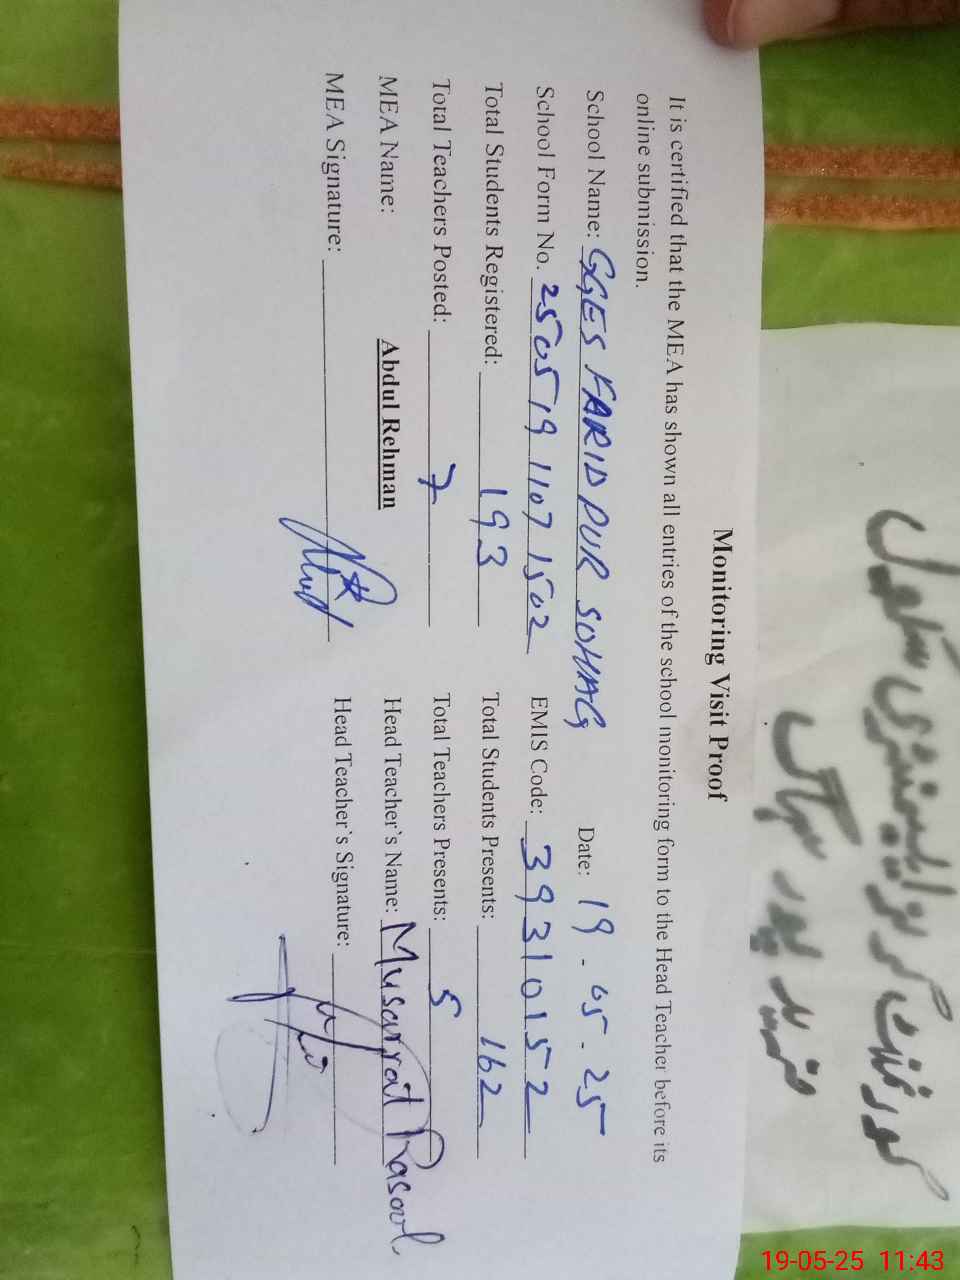 Monitoring Visit Proof
It is certified that the MEA has shown all entries of the school monitoring form to the Head Teacher before its
online submission.
School Name: GGES FARID PUR SOHAG Date: 19-05-25
School Form No. 2505191107 1502 EMIS Code: 39310152
Total Students Registered: 193 Total Students Presents: 162
Total Teachers Posted: 7 Total Teachers Presents: 5
MEA Name: Abdul Rehman Head Teacher's Name: Musarrat Rasool
MEA Signature: Head Teacher's Signature:
گورنمنٹ گرلز ایلیمنٹری سکول
فرید پور سہاگ
19-05-25 11:43